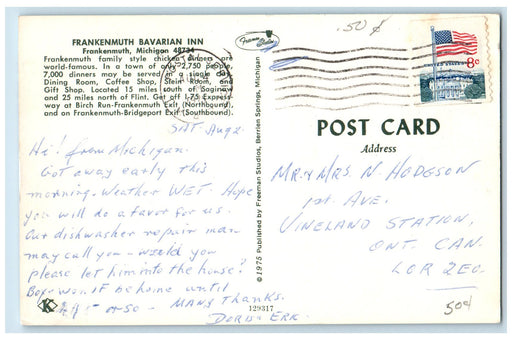 FRANKENMUTH BAVARIAN INN
Frankenmuth, Michigan 48734
Frankenmuth family style chicken dinners are
world-famous. In a town of only 2,750 people,
7,000 dinners may be served in a single day.
Dining Room, Coffee Shop, Stein Room, and
Gift Shop. Located 15 miles south of Saginaw
and 25 miles north of Flint. Get off I-75 Express-
way at Birch Run-Frankenmuth Exit (Northbound),
and on Frankenmuth-Bridgeport Exit (Southbound).
SAT. Aug 2
Hi! from Michigan.
Got away early this
morning. Weather WET. Hope
you will do a favor for us.
Our dishwasher repair man
may call you - would you
please let him into the house?
won't be home until
or so - Many Thanks.
Doris Erk.
K
129317
©1975 Published by Freeman Studios, Berrien Springs, Michigan
.50 ¢
8c
POST CARD
Address
MR. & MRS N. HODGSON
1st AVE.
VINELAND STATION,
ONT. CAN.
LOR 2EO.
50¢